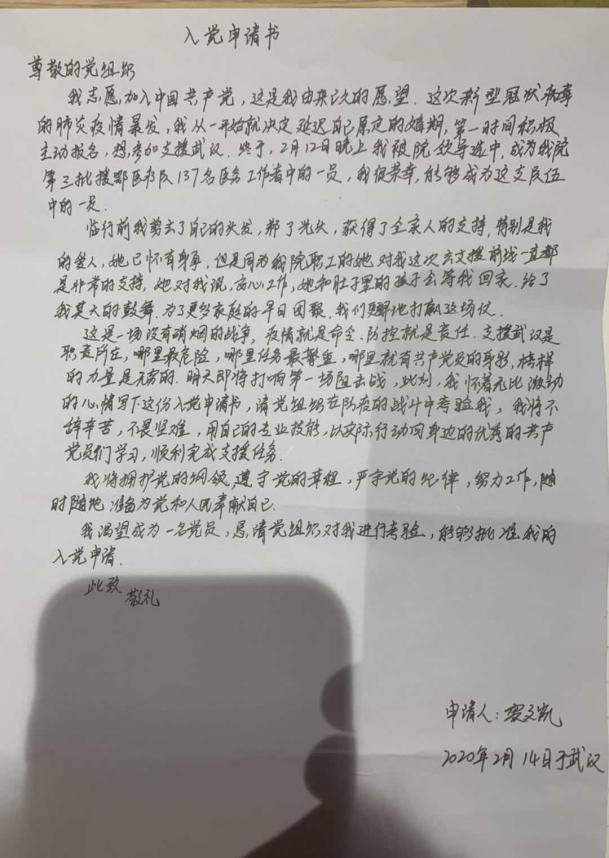 入党申请书
尊敬的党组织
我志愿加入中国共产党，这是我由来已久的愿望．这次新型冠状病毒
的肺炎疫情暴发，我从一开始就决定延迟自己原定的婚期，第一时间积极
主动报名，想参加支援武汉．终于，2月12日晚上我被院领导选中，成为我院
第三批援鄂医疗队137名医务工作者中的一员，我很荣幸，能够成为这支队伍
中的一员．
临行前我剪去了自己的头发，剃了光头，获得了全家人的支持，特别是我
的爱人，她已怀有身孕，但是同为我院职工的她，对我这次去支援前线一直都
是非常的支持，她对我说，安心工作，她和肚子里的孩子会等我回家，给了
我莫大的鼓舞．为了更多家庭的早日团聚，我们更好地打赢这场仗．
这是一场没有硝烟的战争，疫情就是命令，防控就是责任．支援武汉是
职责所在，哪里最危险，哪里任务最繁重，哪里就有共产党员的身影，榜样
的力量是无穷的．明天即将打响第一场阻击战，此刻，我怀着无比激动
的心情写下这份入党申请书，请党组织在防疫的战斗中考验我，我将不
辞辛苦，不畏艰难，用自己的专业技能，以实际行动向身边的优秀的共产
党员们学习，顺利完成支援任务．
我将拥护党的纲领，遵守党的章程，严守党的纪律，努力工作，随
时随地准备为党和人民奉献自己．
我渴望成为一名党员，恳请党组织对我进行考验，能够批准我的
入党申请．
此致
敬礼
申请人：文凯
2020年2月14日于武汉